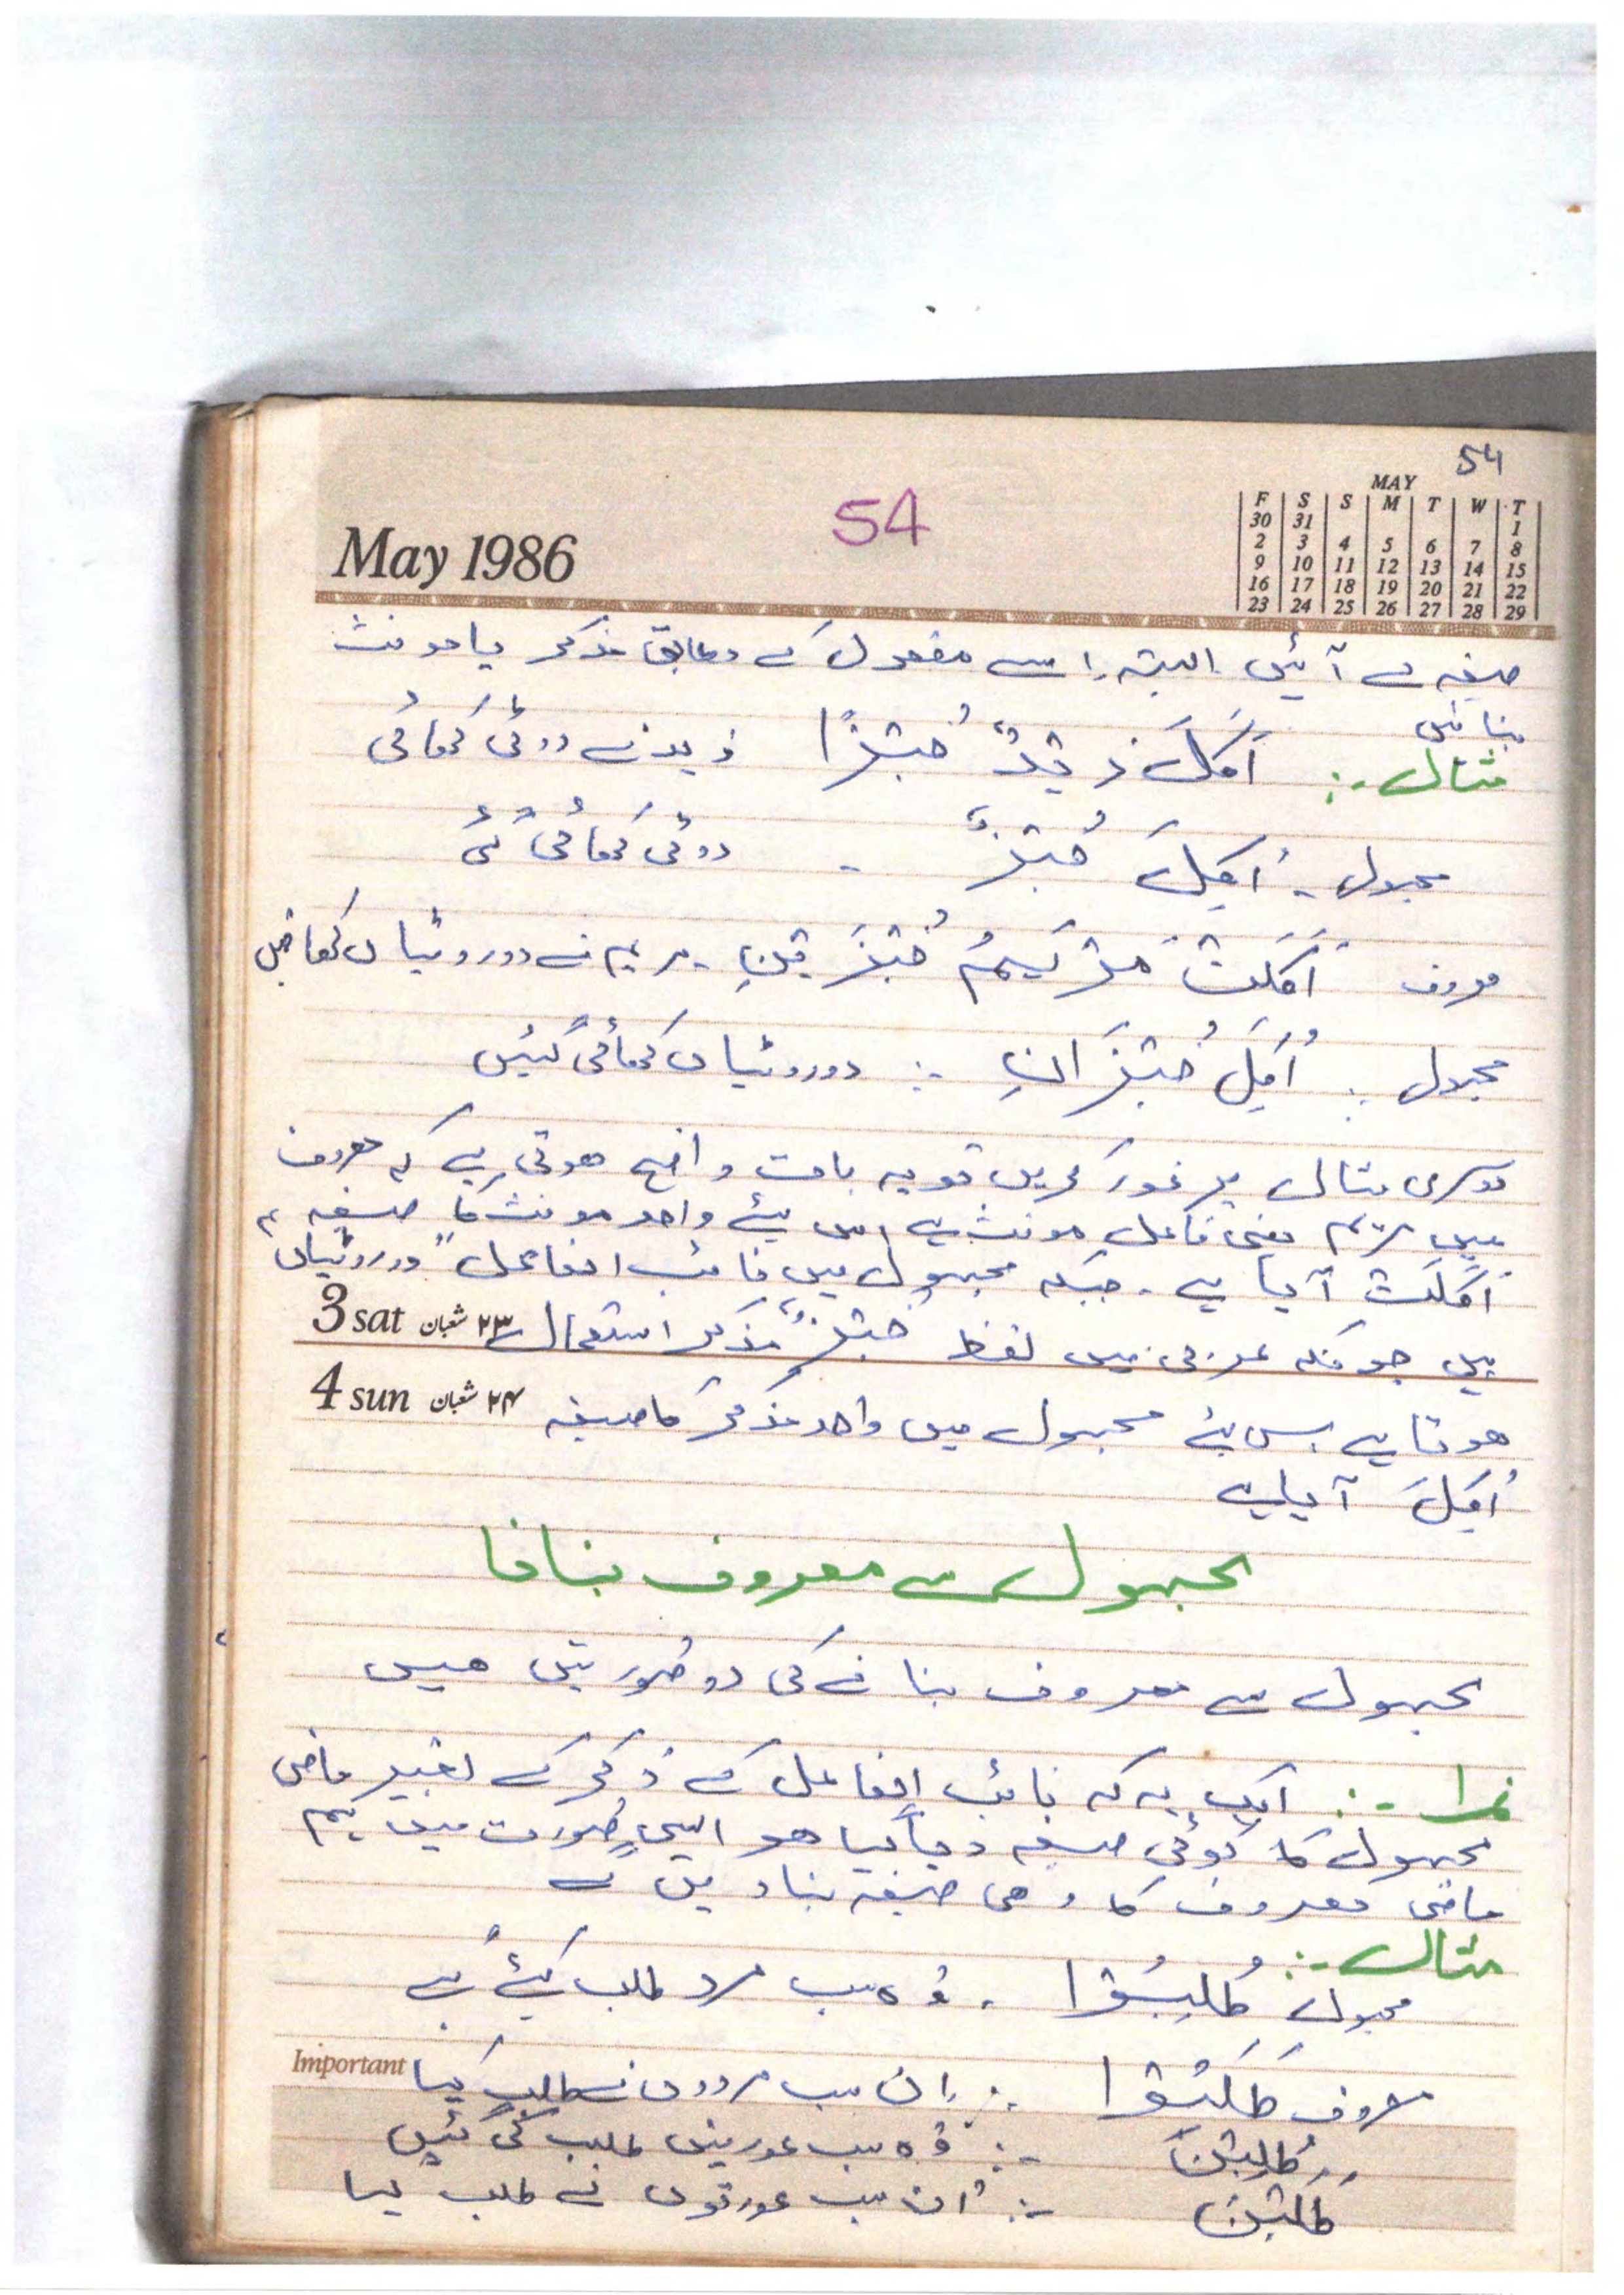 54
54
May 1986
MAY
F S S M T W T
30 31 1
2 3 4 5 6 7 8
9 10 11 12 13 14 15
16 17 18 19 20 21 22
23 24 25 26 27 28 29
صیغہ سے آئیں البتہ اسے مفعول کے مطابق مذکر یا مونث
بنائیں
مثال :- اَکَلَ زَیْدٌ خُبْزًا زید نے روٹی کھائی
مجہول - اُکِلَ خُبْزٌ - روٹی کھائی گئی
معروف اَکَلَتْ مَرْیَمُ خُبْزَیْنِ - مریم نے دو روٹیاں کھائیں
مجہول : اُکِلَ خُبْزَانِ :- دو روٹیاں کھائی گئیں
دوسری مثال پر غور کریں تو یہ بات واضح ھوتی ہے کہ معروف
میں مریم یعنی فاعل مونث ہے اس لئے واحد مونث کا صیغہ
اَکَلَتْ آیا ہے - جبکہ مجہول میں نائب الفاعل "دو روٹیاں"
ہیں چونکہ عربی میں لفظ خُبْزٌ مذکر استعمال
3 sat ۲۳ شعبان
4 sun ۲۴ شعبان
ھوتا ہے اس لئے مجہول میں واحد مذکر کا صیغہ
اُکِلَ آیا ہے
مجہول سے معروف بنانا
مجہول سے معروف بنانے کی دو صُورتیں ھیں
نمبرا :- ایک یہ کہ نائب الفاعل کے ذکر کے بغیر ماضی
مجہول کا کوئی صیغہ دیا گیا ھو ایسی صُورت میں ہم
ماضی معروف کا وھی صیغہ بنا دیں گے
مثال :-
مجہول طُلِبُوْا - وُہ سب مرد طلب کیئے گئے
معروف طَلَبُوْا :- اِن سب مردوں نے طلب کیا
Important
طُلِبْنَ :- وُہ سب عورتیں طلب کی گئیں
طَلَبْنَ :- اُن سب عورتوں نے طلب کیا